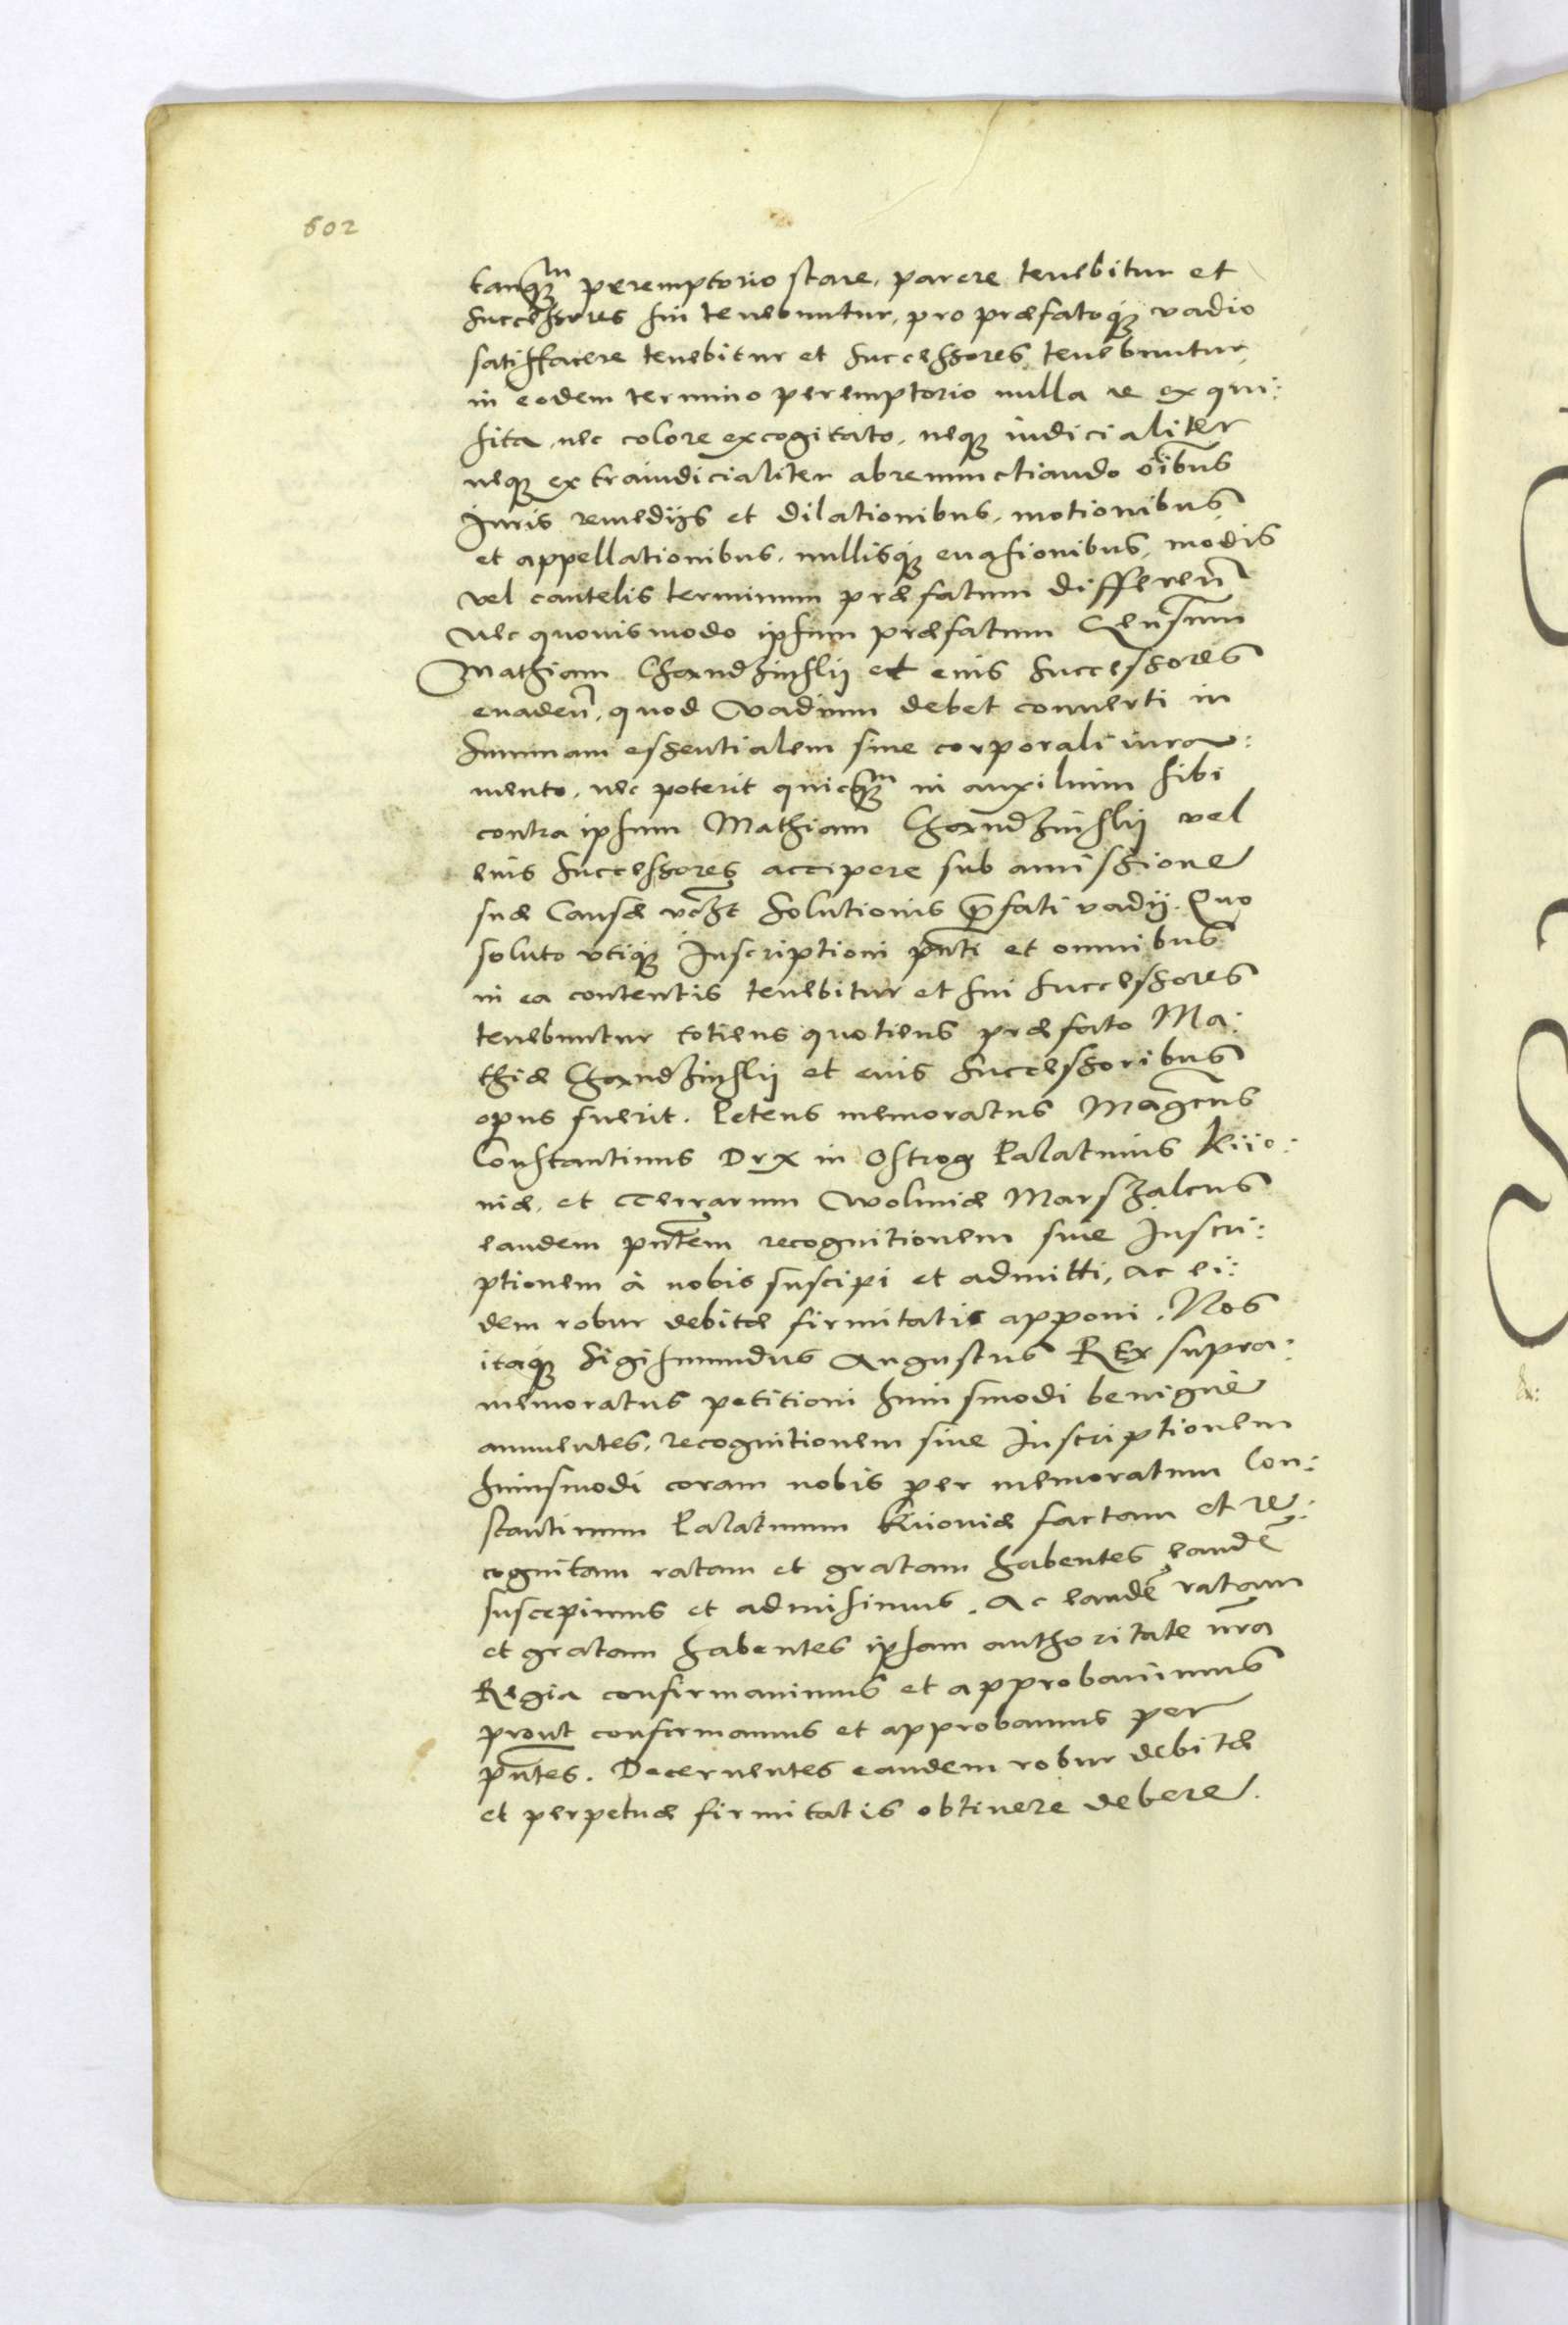 602
tanq̃m peremptorio stare, parere tenebitur et
Successores sui tenebuntur, pro præfatoq; vadio
satisfacere tenebitur et Successores tenebuntur,
in eodem termino peremptorio nulla re exqui:
sita, nec colore excogitato, neq; iudicialiter
neq; extraiudicialiter abrenunctiando oĩbus
Iuris remedijs et dilationibus, motionibus
et appellationibus, nullisq; euasionibus, modis
vel cautelis terminum præfatum differeñ
Nec quouismodo ipsum præfatum Geñsum
Mathiam Chandzinslij et eius Successores
euadeñ, quod Vadium debet conuerti in
Summam essentialem sine corporali iura:
mento, nec poterit quicq̃m in auxilium sibi
contra ipsum Mathiam Chandzinslij vel
eius Successores accipere sub amissione
suæ Causæ vczt Solutionis p̃fati vadij. Quo
soluto vtiq; Inscriptioni pñti et omnibus
in ea contentis tenebitur et sui Successores
tenebuntur totiens quotiens præfato Ma:
thiæ Chandzinslij et eius Successoribus
opus fuerit. Petens memoratus Mag̃cus
Constantinus Dux in Ostrog Palatinus Kiio:
uiæ, et Terrarum Woliniæ Marszalcus
eandem pñtem recognitionem siue Inscri:
ptionem à nobis suscipi et admitti, ac ei:
dem robur debitæ firmitatis apponi. Nos
itaq; Sigismundus Augustus REx supra:
memoratus petitioni huiusmodi benignè
annuentes, recognitionem siue Inscriptionem
huiusmodi coram nobis per memoratum Con:
stantinum Palatinum Kiiouiæ factam et re:
cognitam ratam et gratam habentes eandẽ
suscepimus et admisimus. Ac eandẽ ratam
et gratam habentes ipsam authoritate nr̃a
Regia confirmauimus et approbauimus
prout confirmamus et approbamus per
pñtes. Decernentes eandem robur debitæ
et perpetuæ firmitatis obtinere debere.